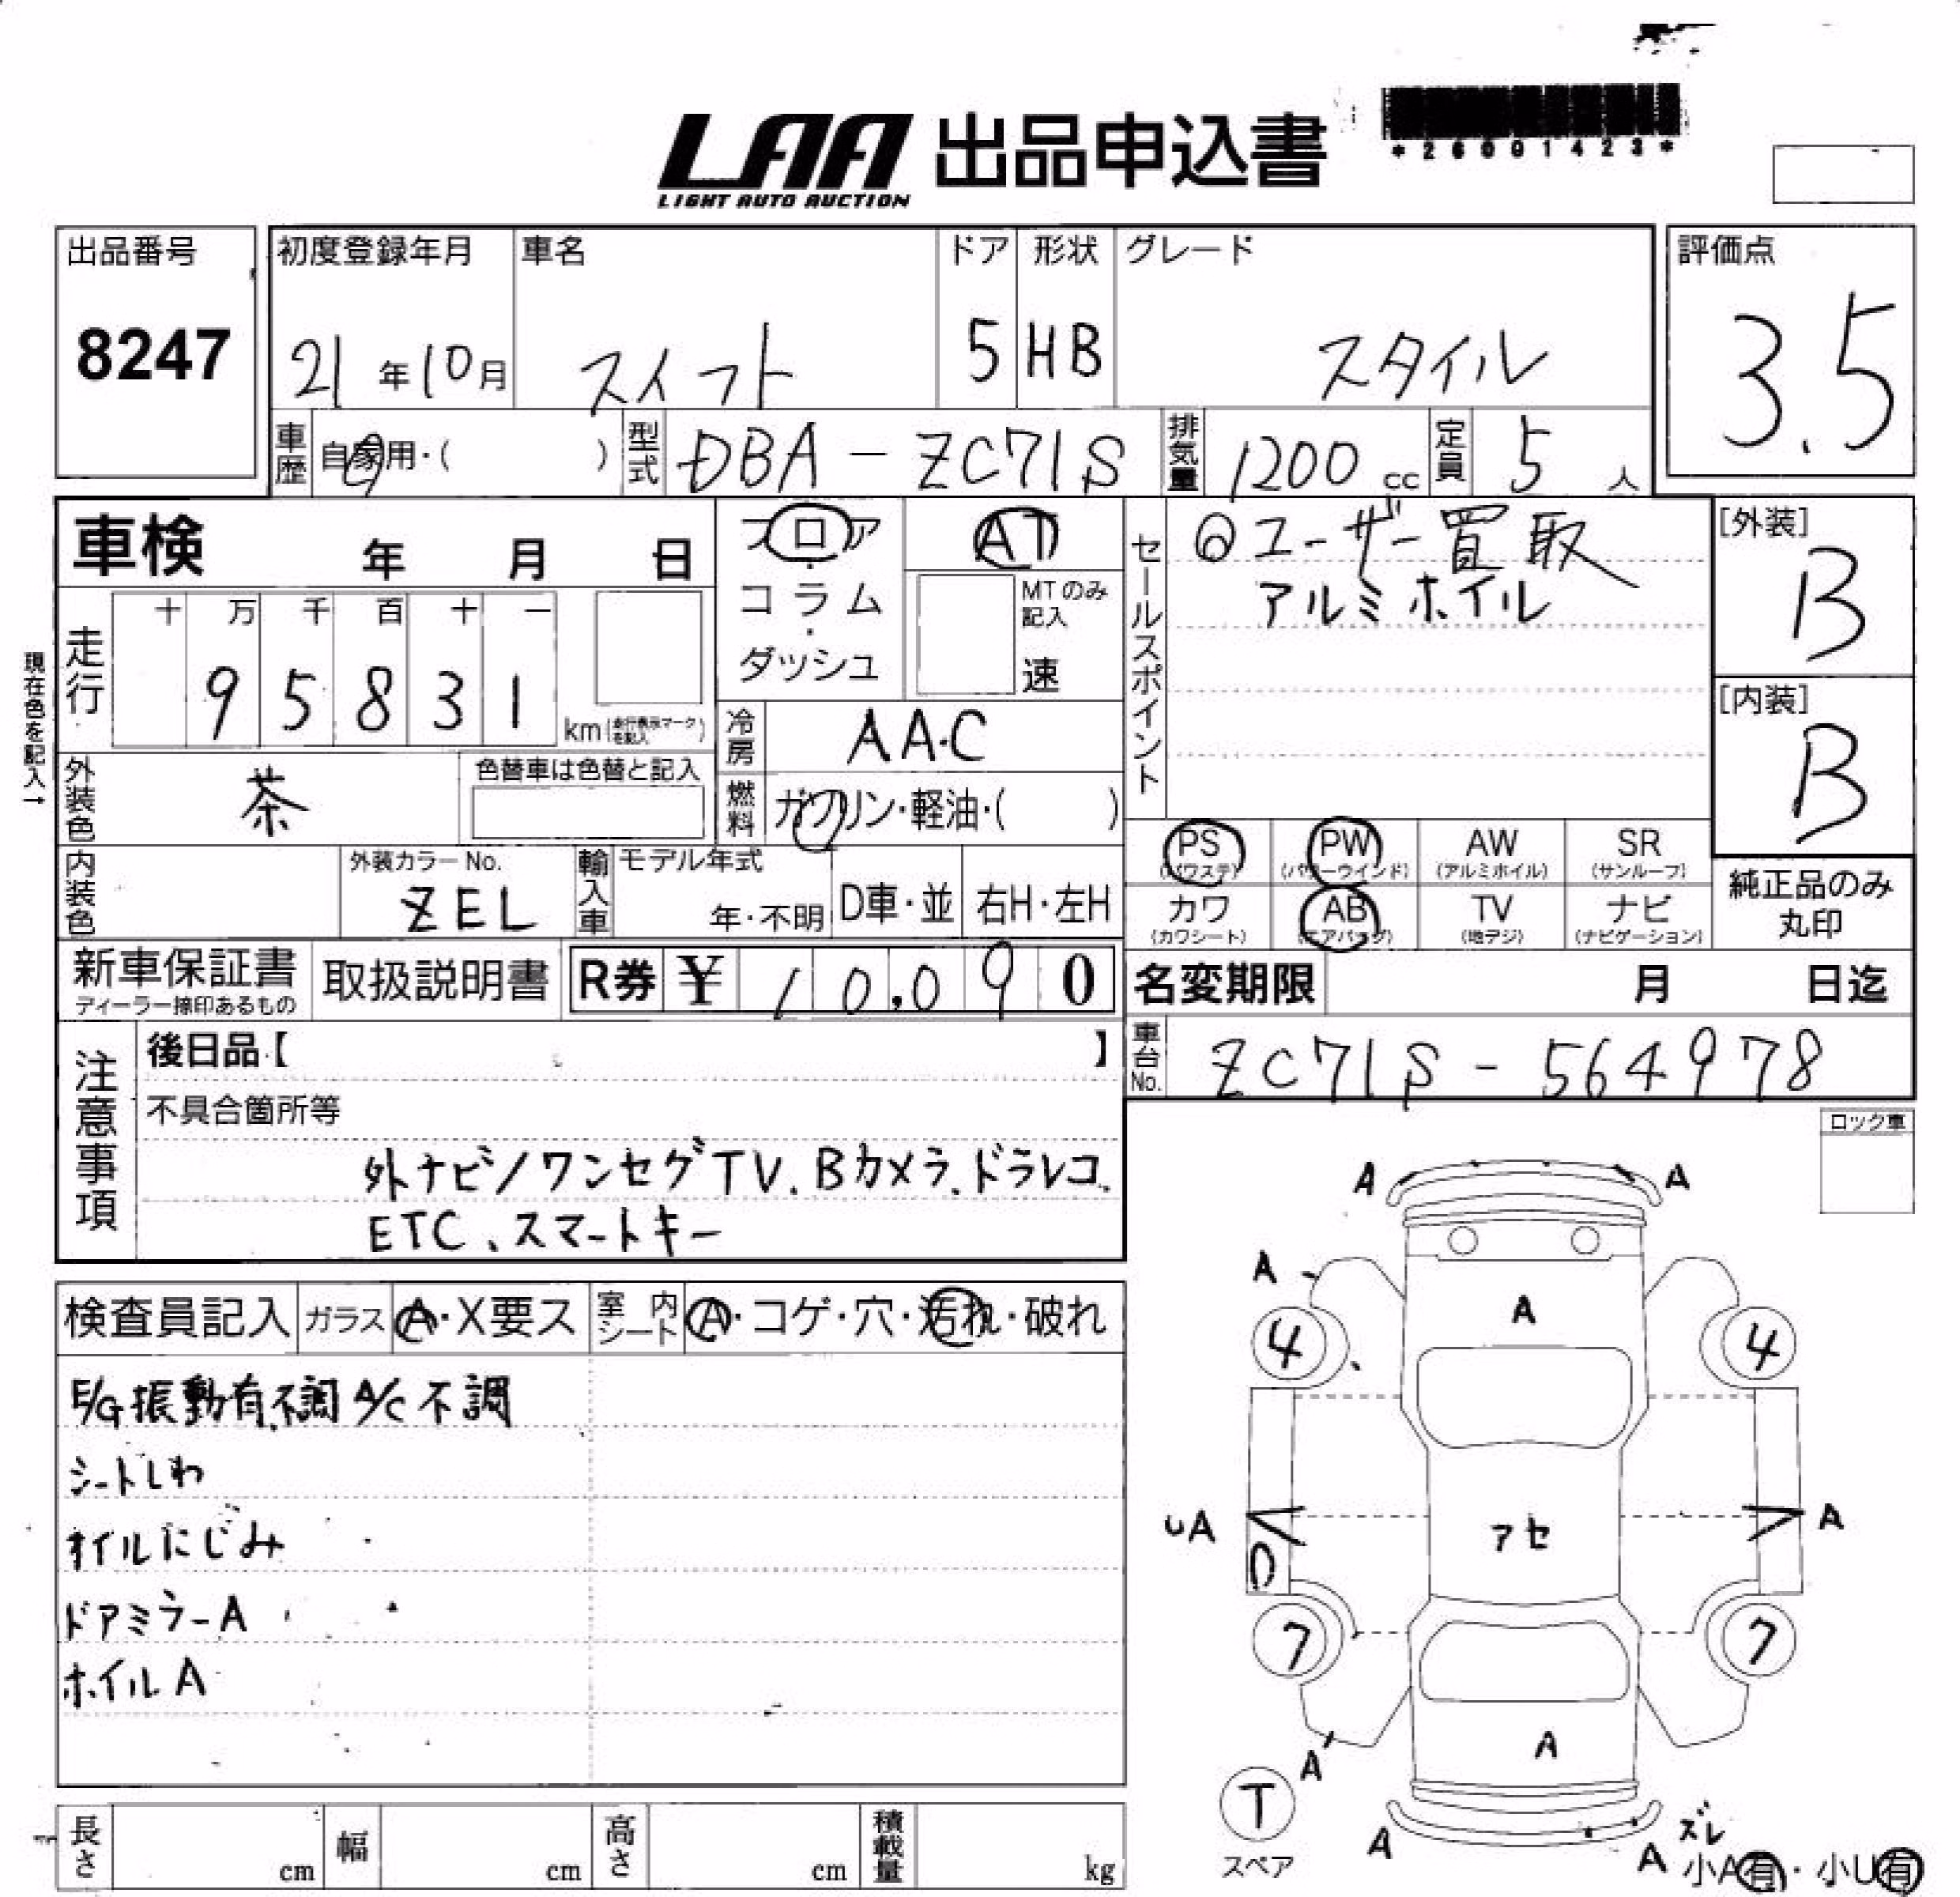 LAA 出品申込書
LIGHT AUTO AUCTION
*26001423*
出品番号
8247
初度登録年月 車名 ドア 形状 グレード
21年10月 スイフト 5 HB スタイル
評価点
3.5
車歴 自家用・( ) 型式 DBA-ZC71S 排気量 1200cc 定員 5人
車検 年 月 日
フロア・コラム・ダッシュ
AT
MTのみ記入
速
セールスポイント
◎ユーザー買取
アルミホイル
[外装]
B
[内装]
B
現在色を記入→
走行 十 万 千 百 十 一
9 5 8 3 1 km(走行表示マークを記入)
冷房 AAC
外装色 茶 色替車は色替と記入
燃料 ガソリン・軽油・( )
内装色 外装カラーNo. ZEL
輸入車 モデル年式 年・不明 D車・並 右H・左H
PS (パワステ) PW (パワーウインド) AW (アルミホイル) SR (サンルーフ)
カワ (カワシート) AB (エアバッグ) TV (地デジ) ナビ (ナビゲーション)
純正品のみ
丸印
新車保証書 取扱説明書 R券 ¥ 10,090
ディーラー捺印あるもの
名変期限 月 日迄
車台No. ZC71S-564978
注意事項
後日品【 】
不具合箇所等
外ナビ/ワンセグTV.Bカメラ.ドラレコ.
ETC、スマートキー
ロック車
検査員記入 ガラス A・X要ス 室内シート A・コゲ・穴・汚れ・破れ
E/G振動有不調 A/C不調
シートしわ
オイルにじみ
ドアミラーA
ホイルA
A A
A
A
4 4
UA アセ A
7 7
A
A
T
スペア
A A ズレ
小A有・小U有
長さ cm 幅 cm 高さ cm 積載量 kg